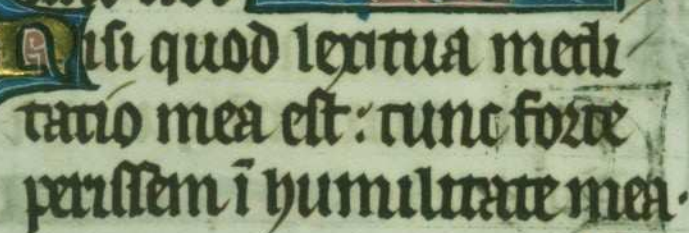 Nisi quod lex tua medi
tatio mea est: tunc forte
perissem ī humilitate mea.